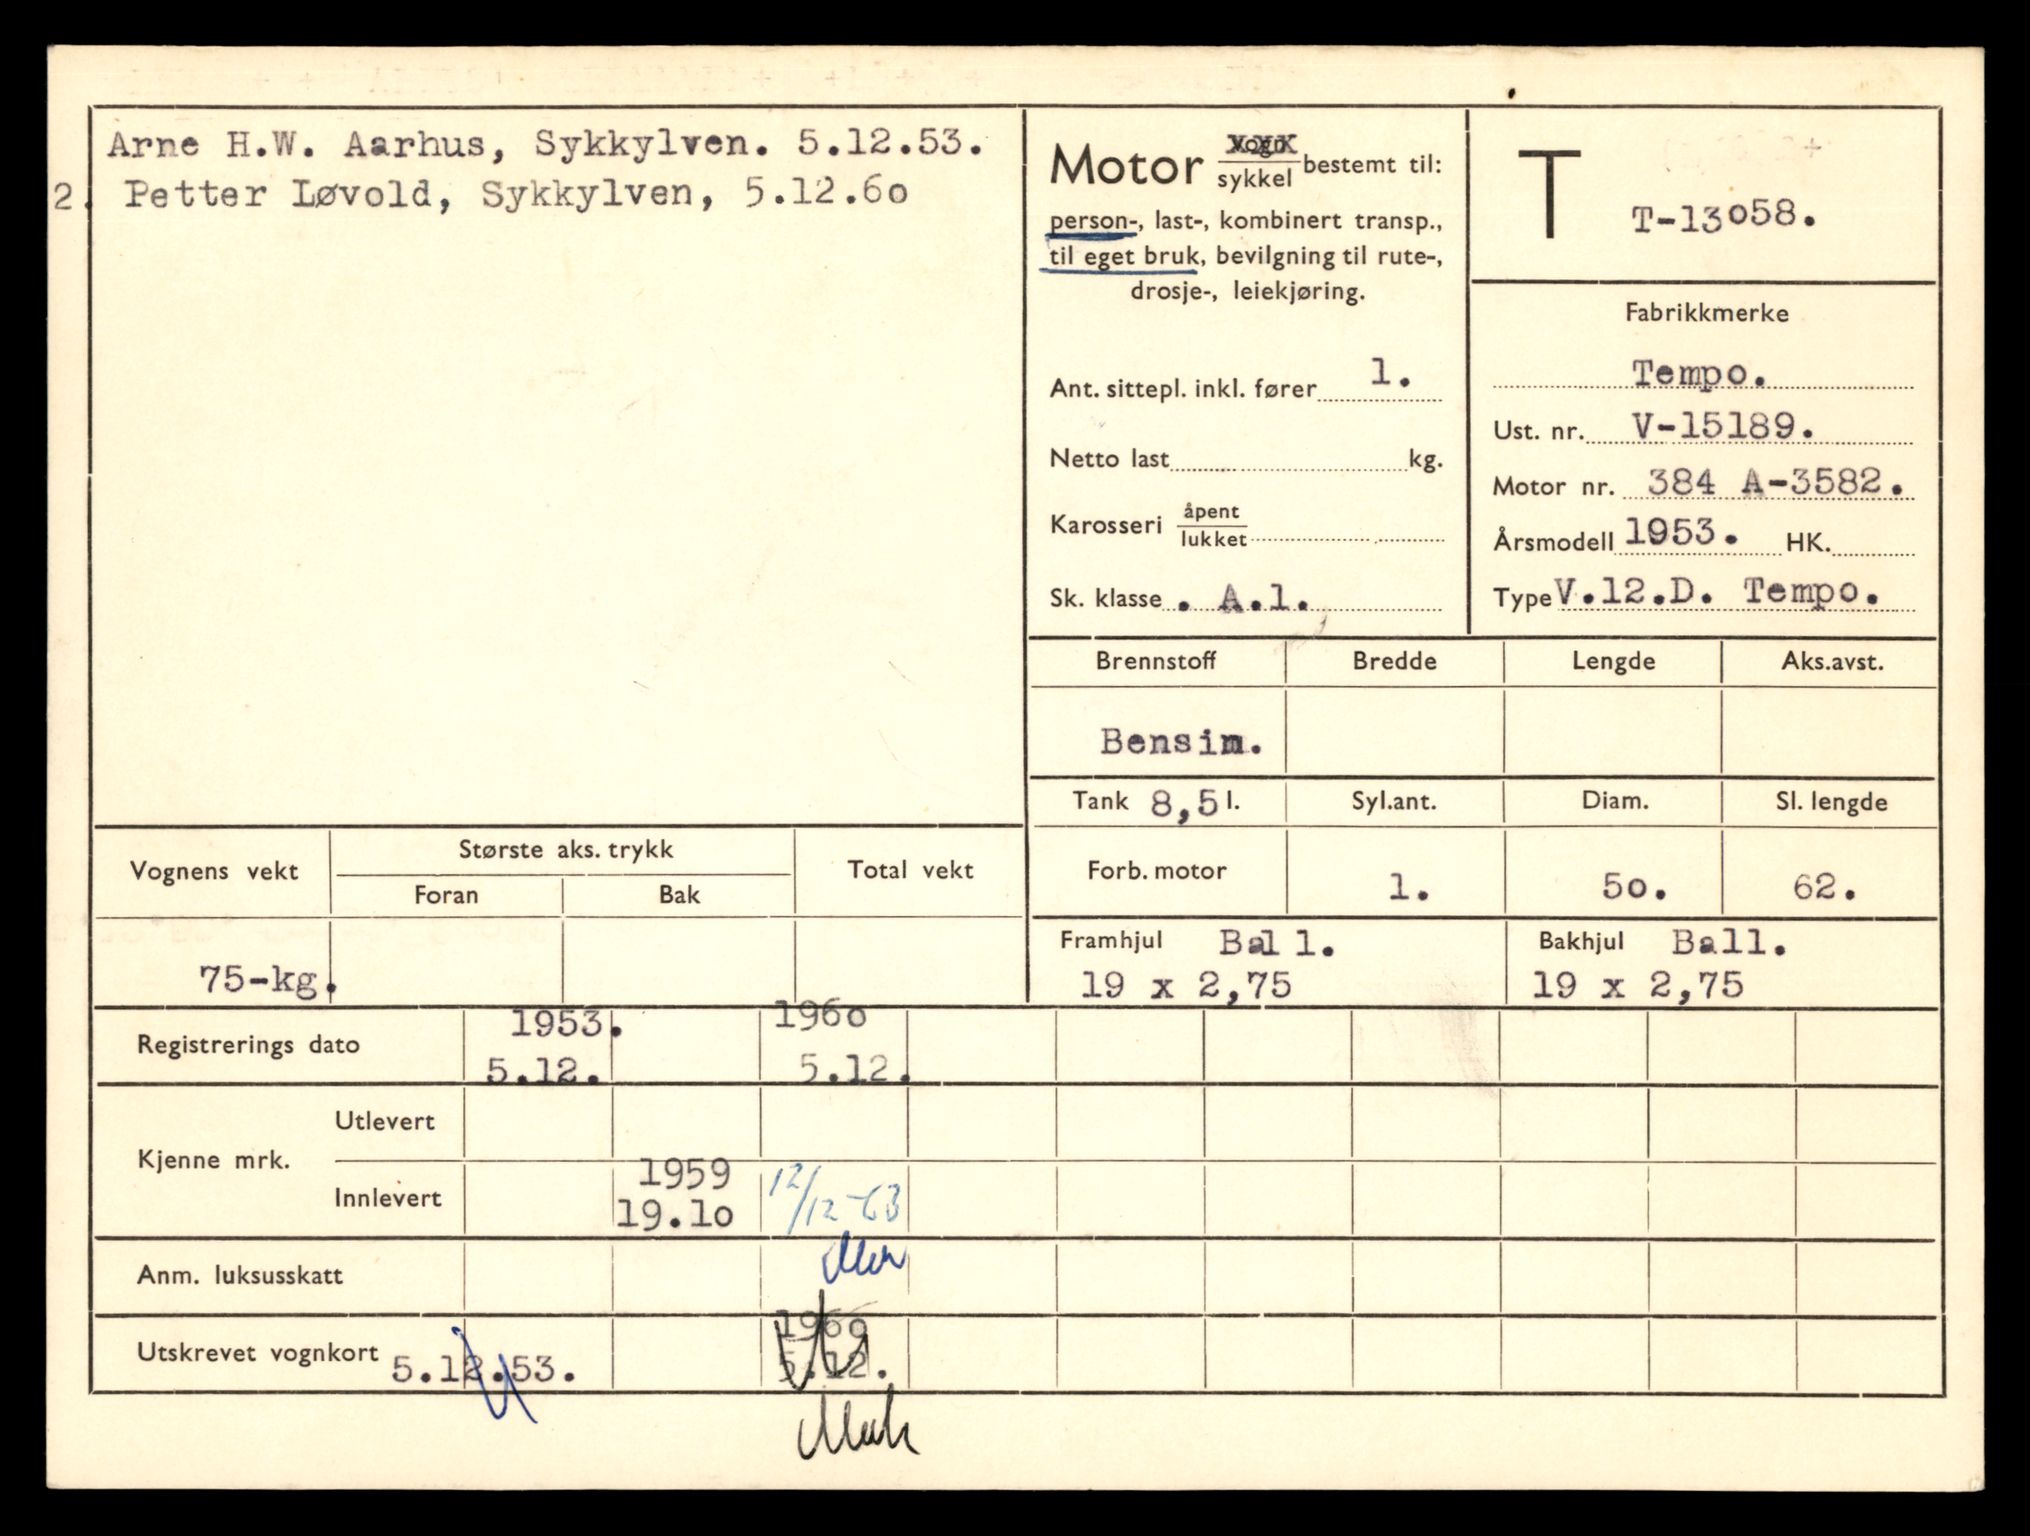 Arne H.W. Aarhus, Sykkylven. 5.12.53.
2. Petter Løvold, Sykkylven, 5.12.6o
Motor vogn/sykkel bestemt til:
person-, last-, kombinert transp.,
til eget bruk, bevilgning til rute-,
drosje-, leiekjøring.
Ant. sittepl. inkl. fører 1.
Netto last kg.
Karosseri åpent/lukket
Sk. klasse . A.1.
T T-13o58.
Fabrikkmerke
Tempo.
Ust. nr. V-15189.
Motor nr. 384 A-3582.
Årsmodell 1953. HK.
Type V.12.D. Tempo.
Brennstoff Bredde Lengde Aks.avst.
Bensin.
Tank 8,5 l. Syl.ant. Diam. Sl. lengde
Forb. motor 1. 5o. 62.
Framhjul Ball. Bakhjul Ball.
19 x 2,75 19 x 2,75
Vognens vekt Største aks. trykk Total vekt
Foran Bak
75-kg.
1953. 196o
Registrerings dato
5.12. 5.12.
Utlevert
Kjenne mrk.
1959 12/12-63
Innlevert
19.1o
Anm. luksusskatt
196o
Utskrevet vognkort 5.12.53. 5.12.